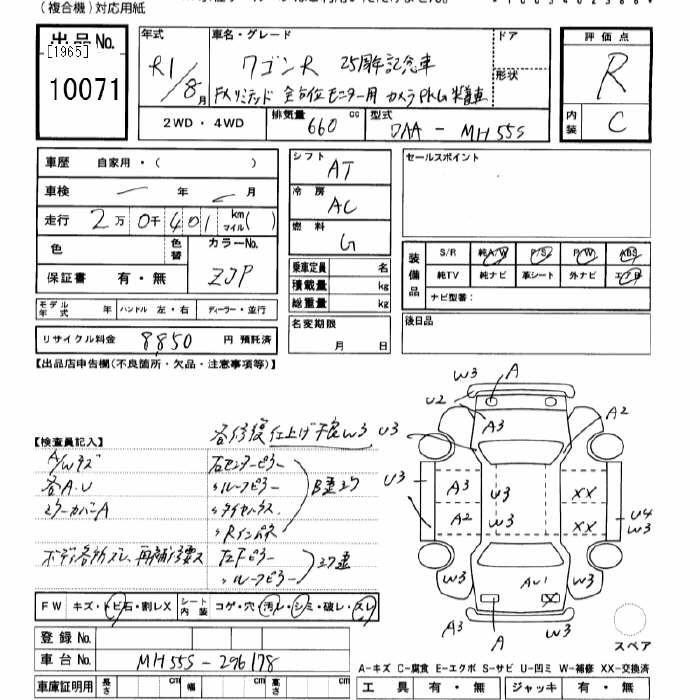 (複合機)対応用紙
出品No.
[1965]
10071
年式
R1/8月
車名・グレード
ワゴンR 25周年記念車
FXリミテッド 全方位モニター用カメラPKG装着車
ドア
形状
評価点
R
内装
C
2WD・4WD
排気量
660 cc
型式
DAA-MH55S
車歴 自家用・( )
車検 年 月
走行 2万0千401 km マイル( )
色 色替 カラーNo.
ZJP
保証書 有・無
モデル年式 年 ハンドル 左・右 ディーラー・並行
リサイクル料金 8,850 円 預託済
シフト
AT
冷房
AC
燃料
G
乗車定員 名
積載量 kg
総重量 kg
名変期限
月 日
セールスポイント
装備品
S/R 純A/W P/S P/W ABS
純TV 純ナビ 革シート 外ナビ エアB
ナビ型番:
後日品
【出品店申告欄(不良箇所・欠品・注意事項等)】
各修復仕上げ不良W3
【検査員記入】
A/Wキズ
各A.U
ミラーカバーA
右センターピラー
〃ルーフピラー
〃Rインパネ
ボディ各所ズレ、再補修要ス
左Fピラー
〃ルーフピラー
W3 A
U2
A3
A2
U3
U3
A3
W3
XX
A2
W3
XX
U4
W3
W3
AU1
W3
X
A3
A
W3
スペア
FW キズ・トビ石・割レX シート内装 コゲ・穴・汚レ・シミ・破レ・スレ
登録No.
車台No. MH55S-296178
車庫証明用 長さ cm 幅 cm 高さ cm
A-キズ C-腐食 E-エクボ S-サビ U-凹ミ W-補修 XX-交換済
工具 有・無 ジャッキ 有・無